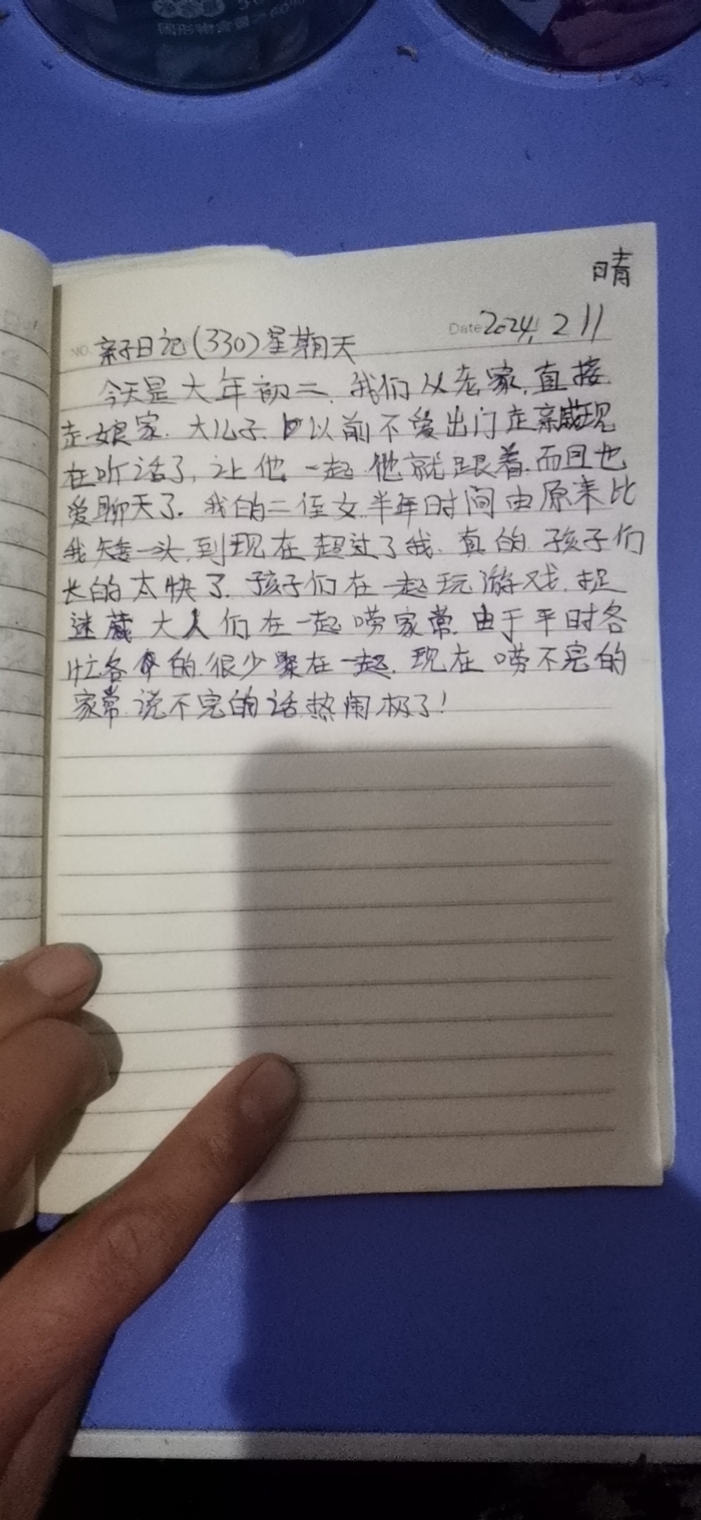 晴
NO. 亲子日记(330)星期天 Date 2024, 2 11
今天是大年初二,我们从老家,直接
走娘家.大儿子以前不爱出门走亲戚现
在听话了,让他一起他就跟着.而且也
爱聊天了.我的二侄女半年时间由原来比
我矮一头,到现在超过了我.真的孩子们
长的太快了.孩子们在一起玩游戏.捉
迷藏 大人们在一起唠家常.由于平时各
忙各的.很少聚在一起.现在唠不完的
家常.说不完的话热闹极了!